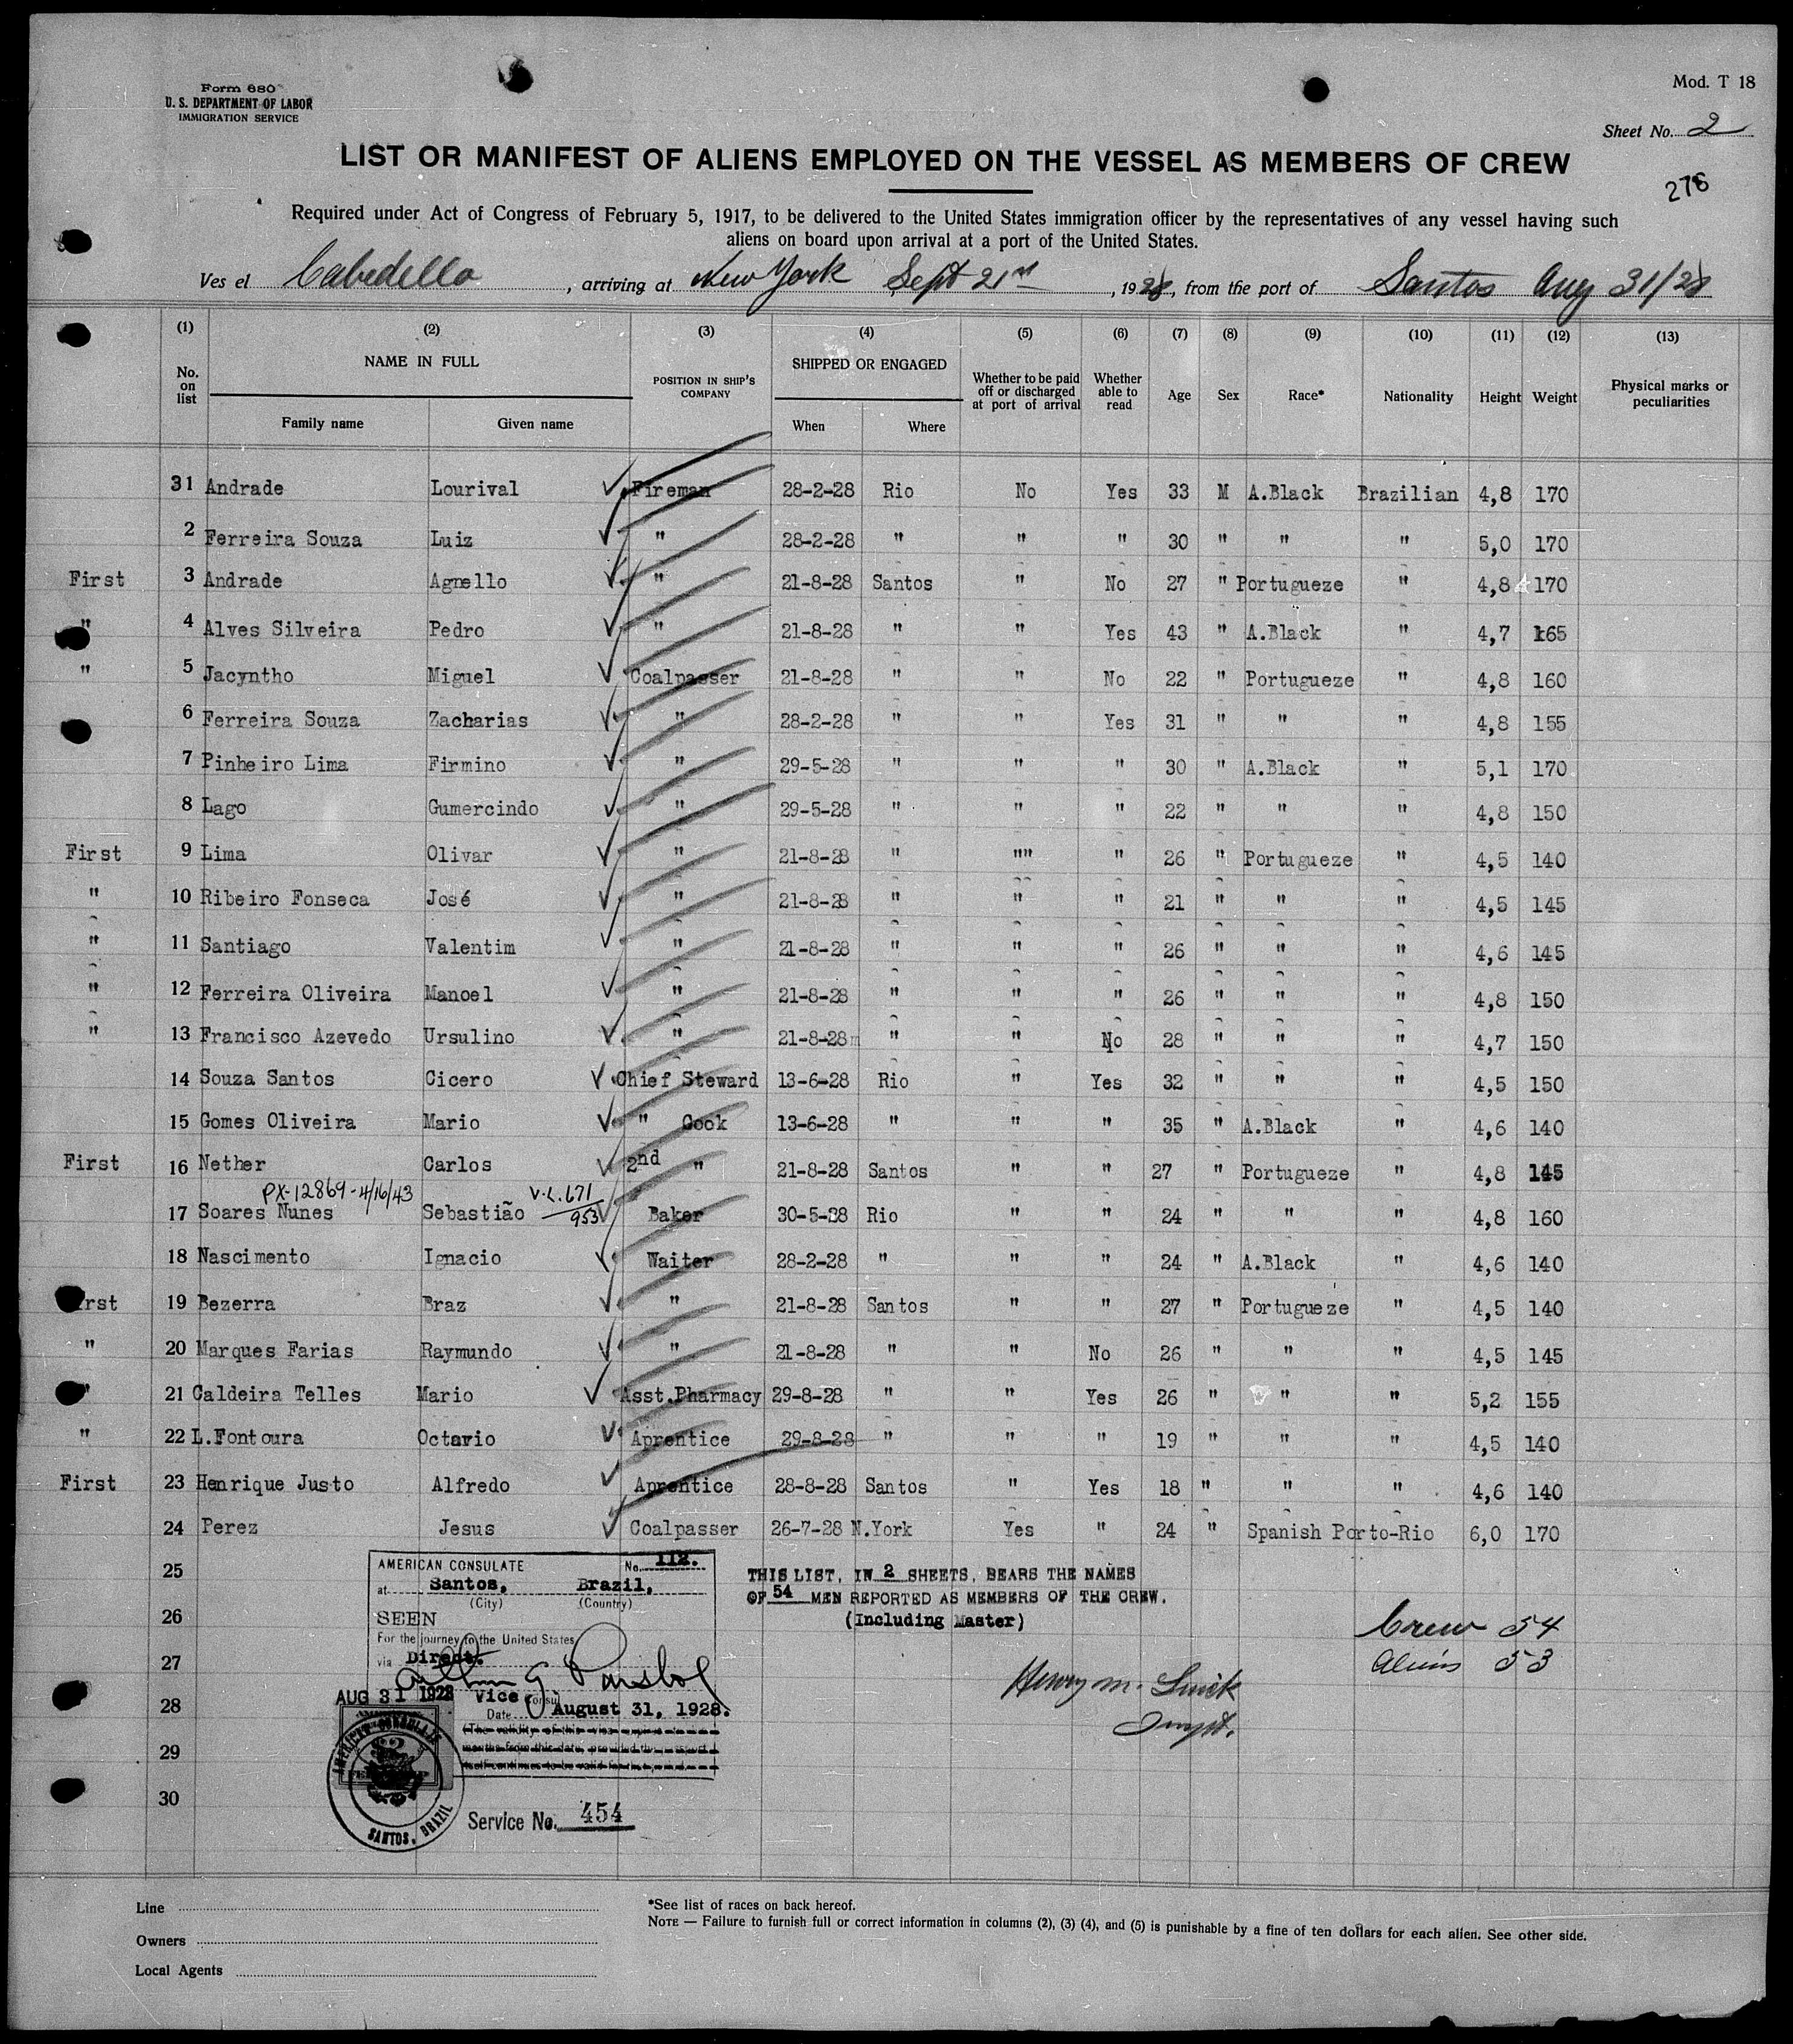 Form 680
U. S. DEPARTMENT OF LABOR
IMMIGRATION SERVICE
Mod. T 18
Sheet No. 2
LIST OR MANIFEST OF ALIENS EMPLOYED ON THE VESSEL AS MEMBERS OF CREW
278
Required under Act of Congress of February 5, 1917, to be delivered to the United States immigration officer by the representatives of any vessel having such
aliens on board upon arrival at a port of the United States.
Ves el Cabedello, arriving at New York Sept 21st, 1928, from the port of Santos Aug 31/28
(1) (2) (3) (4) (5) (6) (7) (8) (9) (10) (11) (12) (13)
No. on list NAME IN FULL Family name Given name POSITION IN SHIP'S COMPANY SHIPPED OR ENGAGED When Where Whether to be paid off or discharged at port of arrival Whether able to read Age Sex Race* Nationality Height Weight Physical marks or peculiarities
31 Andrade Lourival Fireman 28-2-28 Rio No Yes 33 M A.Black Brazilian 4,8 170
2 Ferreira Souza Luiz " 28-2-28 " " " 30 " " " 5,0 170
First 3 Andrade Agnello " 21-8-28 Santos " No 27 " Portugueze " 4,8 170
" 4 Alves Silveira Pedro " 21-8-28 " " Yes 43 " A.Black " 4,7 165
" 5 Jacyntho Miguel Coalpasser 21-8-28 " " No 22 " Portugueze " 4,8 160
6 Ferreira Souza Zacharias " 28-2-28 " " Yes 31 " " " 4,8 155
7 Pinheiro Lima Firmino " 29-5-28 " " " 30 " A.Black " 5,1 170
8 Lago Gumercindo " 29-5-28 " " " 22 " " " 4,8 150
First 9 Lima Olivar " 21-8-28 " "" " 26 " Portugueze " 4,5 140
" 10 Ribeiro Fonseca José " 21-8-28 " " " 21 " " " 4,5 145
" 11 Santiago Valentim " 21-8-28 " " " 26 " " " 4,6 145
" 12 Ferreira Oliveira Manoel " 21-8-28 " " " 26 " " " 4,8 150
" 13 Francisco Azevedo Ursulino " 21-8-28 " " No 28 " " " 4,7 150
14 Souza Santos Cicero Chief Steward 13-6-28 Rio " Yes 32 " " " 4,5 150
15 Gomes Oliveira Mario " Cook 13-6-28 " " " 35 " A.Black " 4,6 140
First 16 Nether Carlos 2nd " 21-8-28 Santos " " 27 " Portugueze " 4,8 145
PX-12869-4/16/43 V.L. 671/953
17 Soares Nunes Sebastião Baker 30-5-28 Rio " " 24 " " " 4,8 160
18 Nascimento Ignacio Waiter 28-2-28 " " " 24 " A.Black " 4,6 140
rst 19 Bezerra Braz " 21-8-28 Santos " " 27 " Portugueze " 4,5 140
" 20 Marques Farias Raymundo " 21-8-28 " " No 26 " " " 4,5 145
" 21 Caldeira Telles Mario Asst.Pharmacy 29-8-28 " " Yes 26 " " " 5,2 155
" 22 L.Fontoura Octavio Aprentice 29-8-28 " " " 19 " " " 4,5 140
First 23 Henrique Justo Alfredo Aprentice 28-8-28 Santos " Yes 18 " " " 4,6 140
24 Perez Jesus Coalpasser 26-7-28 N.York Yes " 24 " Spanish Porto-Rio 6,0 170
25
26
27
28
29
30
AMERICAN CONSULATE No. 112.
at Santos, Brazil,
(City) (Country)
SEEN
For the journey to the United States
via Direct.
AUG 31 1928 Vice Consul
Date August 31, 1928.
AMERICAN CONSULATE
SANTOS, BRAZIL
Service No. 454
THIS LIST, IN 2 SHEETS, BEARS THE NAMES
OF 54 MEN REPORTED AS MEMBERS OF THE CREW.
(Including Master)
Crew 54
Aliens 53
Henry M.
Inspt.
Line
Owners
Local Agents
*See list of races on back hereof.
NOTE — Failure to furnish full or correct information in columns (2), (3) (4), and (5) is punishable by a fine of ten dollars for each alien. See other side.